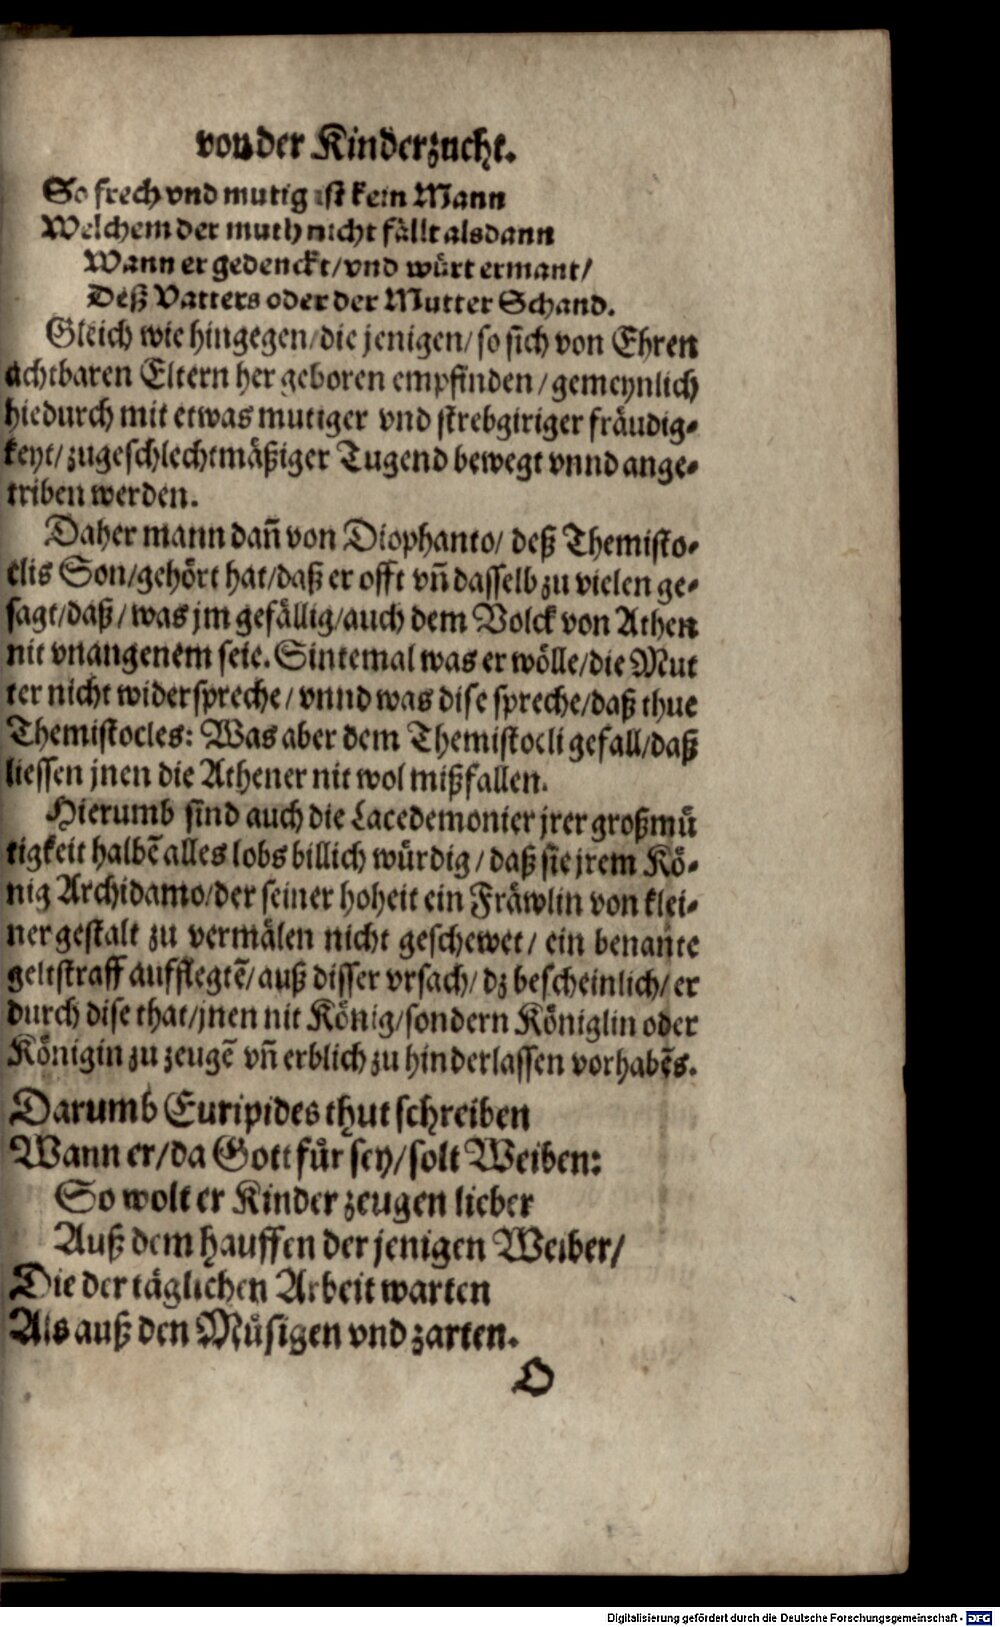 von der Kinderzucht.
So frech vnd mutig ist kein Mann
Welchem der muth nicht fällt alsdann
Wann er gedenckt/ vnd würt ermant/
Deß Vatters oder der Mutter Schand.
Gleich wie hingegen/ die jenigen/ so sich von Ehren
achtbaren Eltern her geboren empfinden/ gemeynlich
hiedurch mit etwas mutiger vnd strebgiriger fräudig-
keyt/ zugeschlechtmäßiger Tugend bewegt vnnd ange-
triben werden.
Daher mann dañ von Diophanto/ deß Themisto-
clis Son/ gehört hat/ daß er offt vñ dasselb zu vielen ge-
sagt/ daß/ was jm gefällig/ auch dem Volck von Athen
nit vnangenem seie. Sintemal was er wölle/ die Mut
ter nicht widerspreche/ vnnd was dise spreche/ daß thue
Themistocles: Was aber dem Themistocli gefall/ daß
liessen jnen die Athener nit wol mißfallen.
Hierumb sind auch die Lacedemonier jrer großmü
tigkeit halbẽ alles lobs billich würdig/ daß sie jrem Kö-
nig Archidamo/ der seiner hoheit ein Fräwlin von klei-
ner gestalt zu vermälen nicht geschewet/ ein benante
geltstraff aufflegtẽ/ auß disser vrsach/ dz bescheinlich/ er
durch dise that/ jnen nit König/ sondern Königlin oder
Königin zu zeugẽ vñ erblich zu hinderlassen vorhabẽs.
Darumb Euripides thut schreiben
Wann er/ da Gott für sey/ solt Weiben:
So wolt er Kinder zeugen lieber
Auß dem hauffen der jenigen Weiber/
Die der täglichen Arbeit warten
Als auß den Müsigen vnd zarten.
D
Digitalisierung gefördert durch die Deutsche Forschungsgemeinschaft - DFG